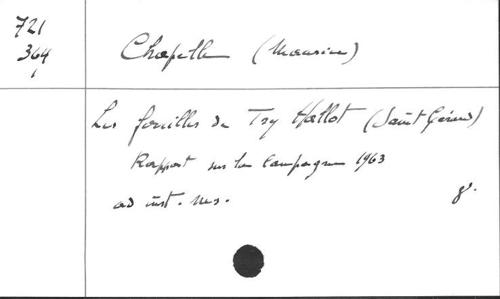 721
364
1
Chapelle (Maurice)
Les fouilles de Try Hallot (Saint Gérard)
Rapport sur la campagne 1963
8°.